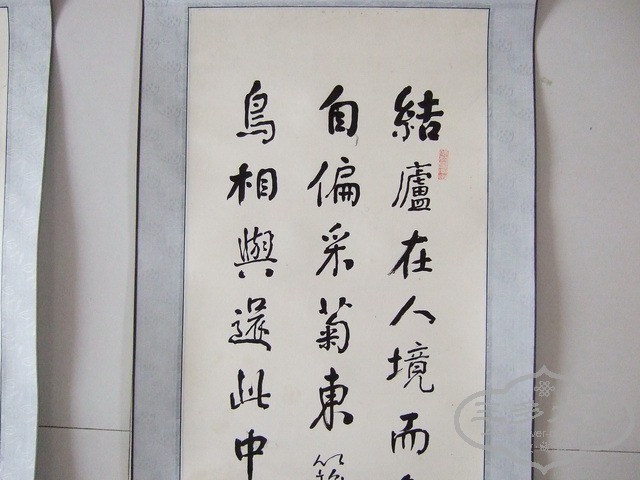 結廬在人境而
自偏采菊東
鳥相與還此中